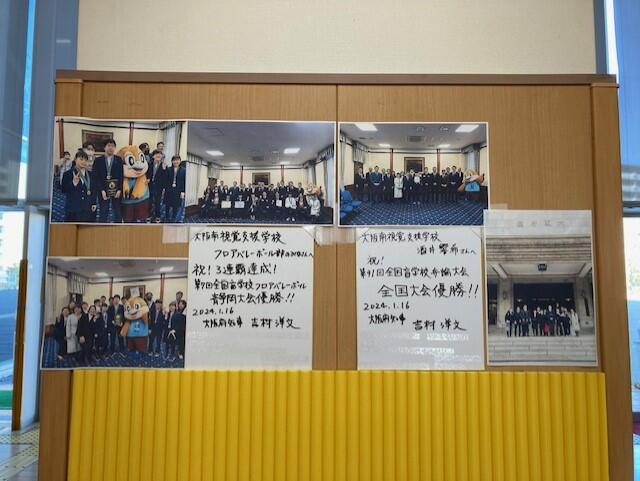 大阪南視覚支援学校
フロアバレーボール部のみなさんへ
祝!3連覇達成!
全国盲学校フロアバレーボール
大会優勝!!
2024.1.16
大阪府知事 吉村洋文
大阪南視覚支援学校
酒井 さんへ
祝!
第91回全国盲学校弁論大会
全国大会優勝!!
2024.1.16
大阪府知事 吉村洋文